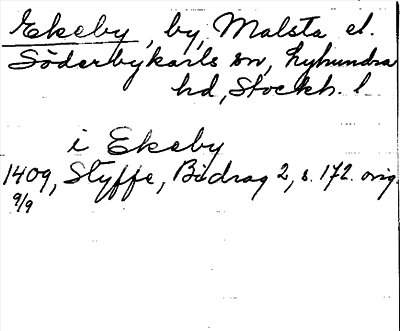 Ekeby, by, Malsta el.
Söderbykarls sn, Lyhundra
hd, Stockh. l.
i Ekeby
1409, Styffe, Bidrag 2, s. 172. orig.
9/9